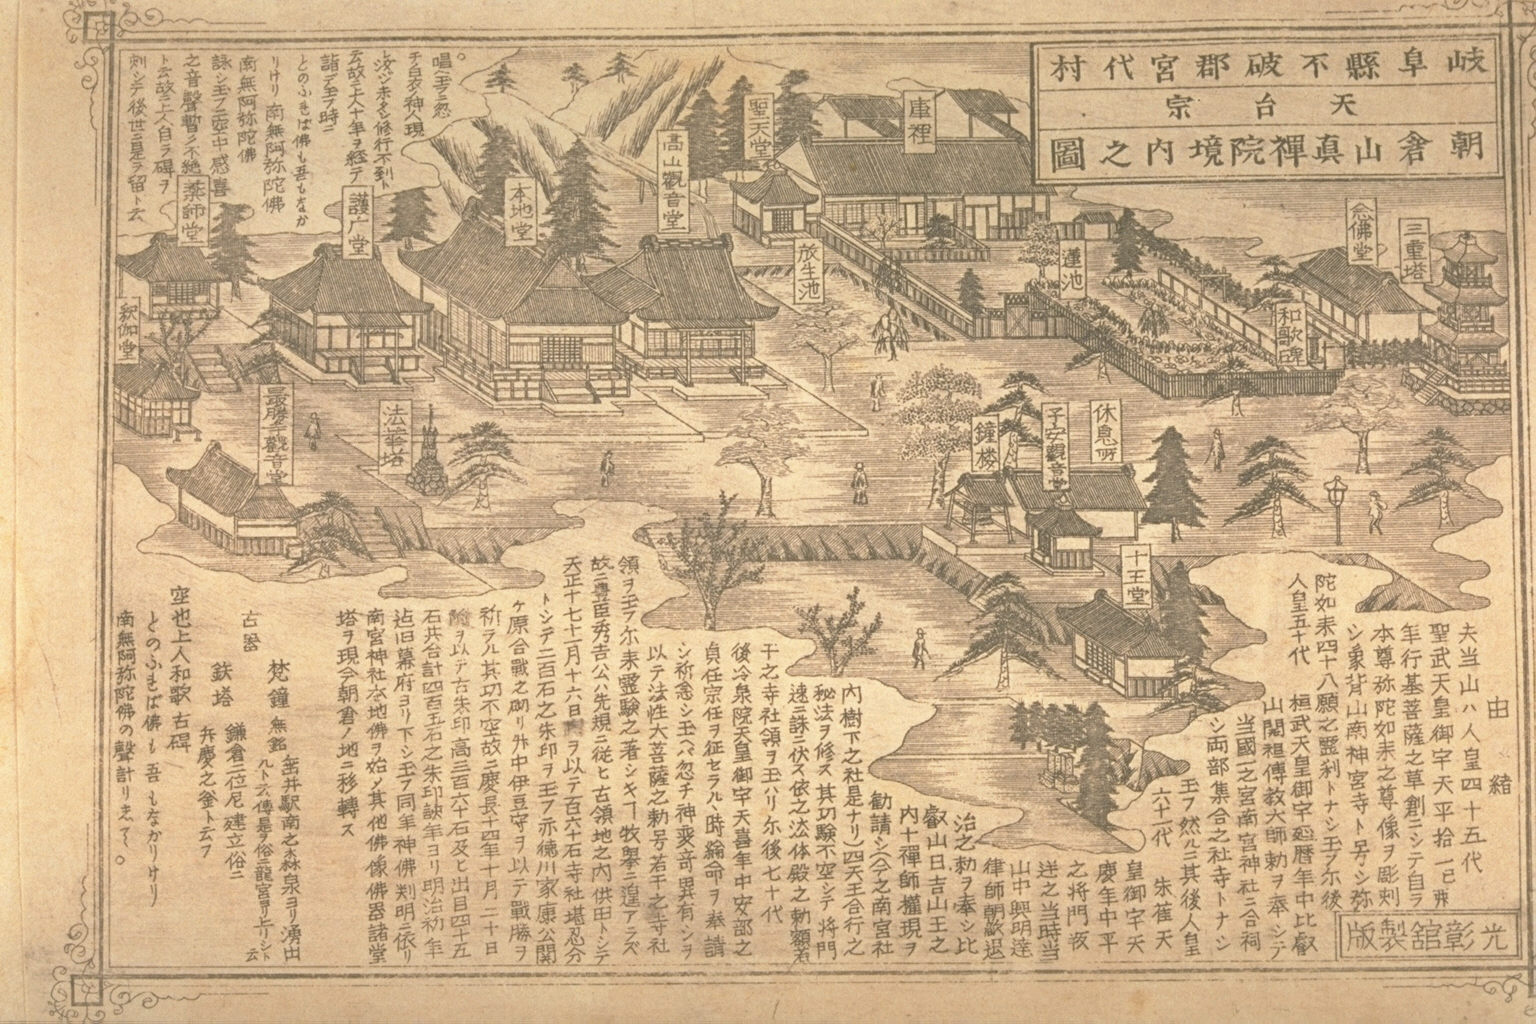 岐阜縣不破郡宮代村
天台宗
朝倉山真禪院境内之圖
三重塔
念佛堂
和歌碑
蓮池
庫裡
聖天堂
放生池
高山觀音堂
本地堂
護广堂
薬師堂
釈伽堂
最勝觀音堂
法華塔
休息所
子安觀音堂
鐘楼
十王堂
由緒
夫当山ハ人皇四十五代
聖武天皇御宇天平拾一己卯
年行基菩薩之草創ニシテ自ラ
本尊弥陀如来之尊像ヲ彫刻
シ象背山南神宮寺ト号シ弥
陀如来四十八願之霊刹トナシ玉フ尓後
人皇五十代 桓武天皇御宇延暦年中比叡
山開祖傳教大師勅ヲ奉シテ
当國一之宮南宮神社ニ合祠
シ両部集合之社寺トナシ
玉フ然ルニ其後人皇
六十一代 朱雀天
皇御宇天
慶年中平
之将門
逆之当時当
山中興明達
律師朝敵退
治之勅ヲ奉シ比
叡山日吉山王之
内十禪師權現ヲ
勧請シ(今之南宮社
内樹下之社是ナリ)四天王合行之
秘法ヲ修ス其功験不空シテ将門
速ニ誅ニ伏ス依之法体殿之勅額若
干之寺社領ヲ玉ハリ尓後七十代
後冷泉院天皇御宇天喜年中安部之
貞任宗任ヲ征セラルヽ時綸命ヲ奉請
シ祈念シ玉ヘバ忽チ神変竒異有シヲ
以テ法性大菩薩之勅号若干之寺社
領ヲ玉フ尓来霊験之著シキヿ牧擧ニ遑アラズ
故ニ豊臣秀吉公ハ先規ニ従ヒ古領地之内供田トシテ
天正十七十一月十六日 ヲ以テ百六十石寺社堪忍分
トシテ二百石之朱印ヲ玉フ亦徳川家康公関
ケ原合戰之砌リ竹中伊豆守ヲ以テ戰勝ヲ
祈ラル其功不空故ニ慶長十四年十月二十日
ヲ以テ古朱印高三百六十石及ヒ出目四十五
石共合計四百五石之朱印 年ヨリ明治初年
迠旧幕府ヨリ下シ玉フ同年神佛判明ニ依リ
南宮神社本地佛ヲ始シ其他佛像佛器諸堂
塔ヲ現今朝倉ノ地ニ移轉ス
古器
梵鐘 無銘 垂井駅南之森泉ヨリ湧出
ルト云傳是ヲ俗ニ龍宮ヨリ上リシト云
鉄塔 鎌倉二位尼建立俗ニ
弁慶之釜ト云フ
空也上人和歌古碑
とのふれば佛も吾もなかりけり
南無阿弥陀佛の聲計りして
唱へ玉ヘ忽
チ白髪ノ神人現
浅シ未タ修行不到ト
云故上人十年ヲ経テ
詣デ玉フ時ニ
とのふれば佛も吾もなか
りけり 南無阿弥陀佛
南無阿弥陀佛
詠シ玉フ空中感喜
之音聲暫シ不絶
ト云故ニ上人自ラ碑ヲ
刻シテ後世ニ是ヲ留ト云
光彰舘製版